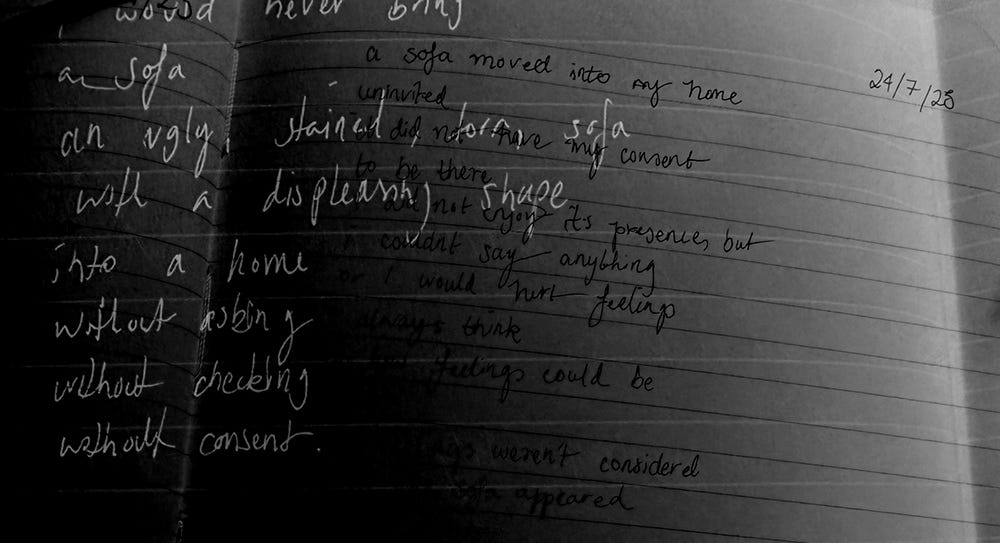 I would never bring
a sofa
an ugly, stained, torn, sofa
with a displeasing shape
into a home
without asking
without checking
without consent.
24/7/23
a sofa moved into my home
uninvited
it did not have my consent
to be there
I did not enjoy its presence, but
I couldnt say anything
or I would hurt feelings
always think
feelings could be
werent considered
sofa appeared